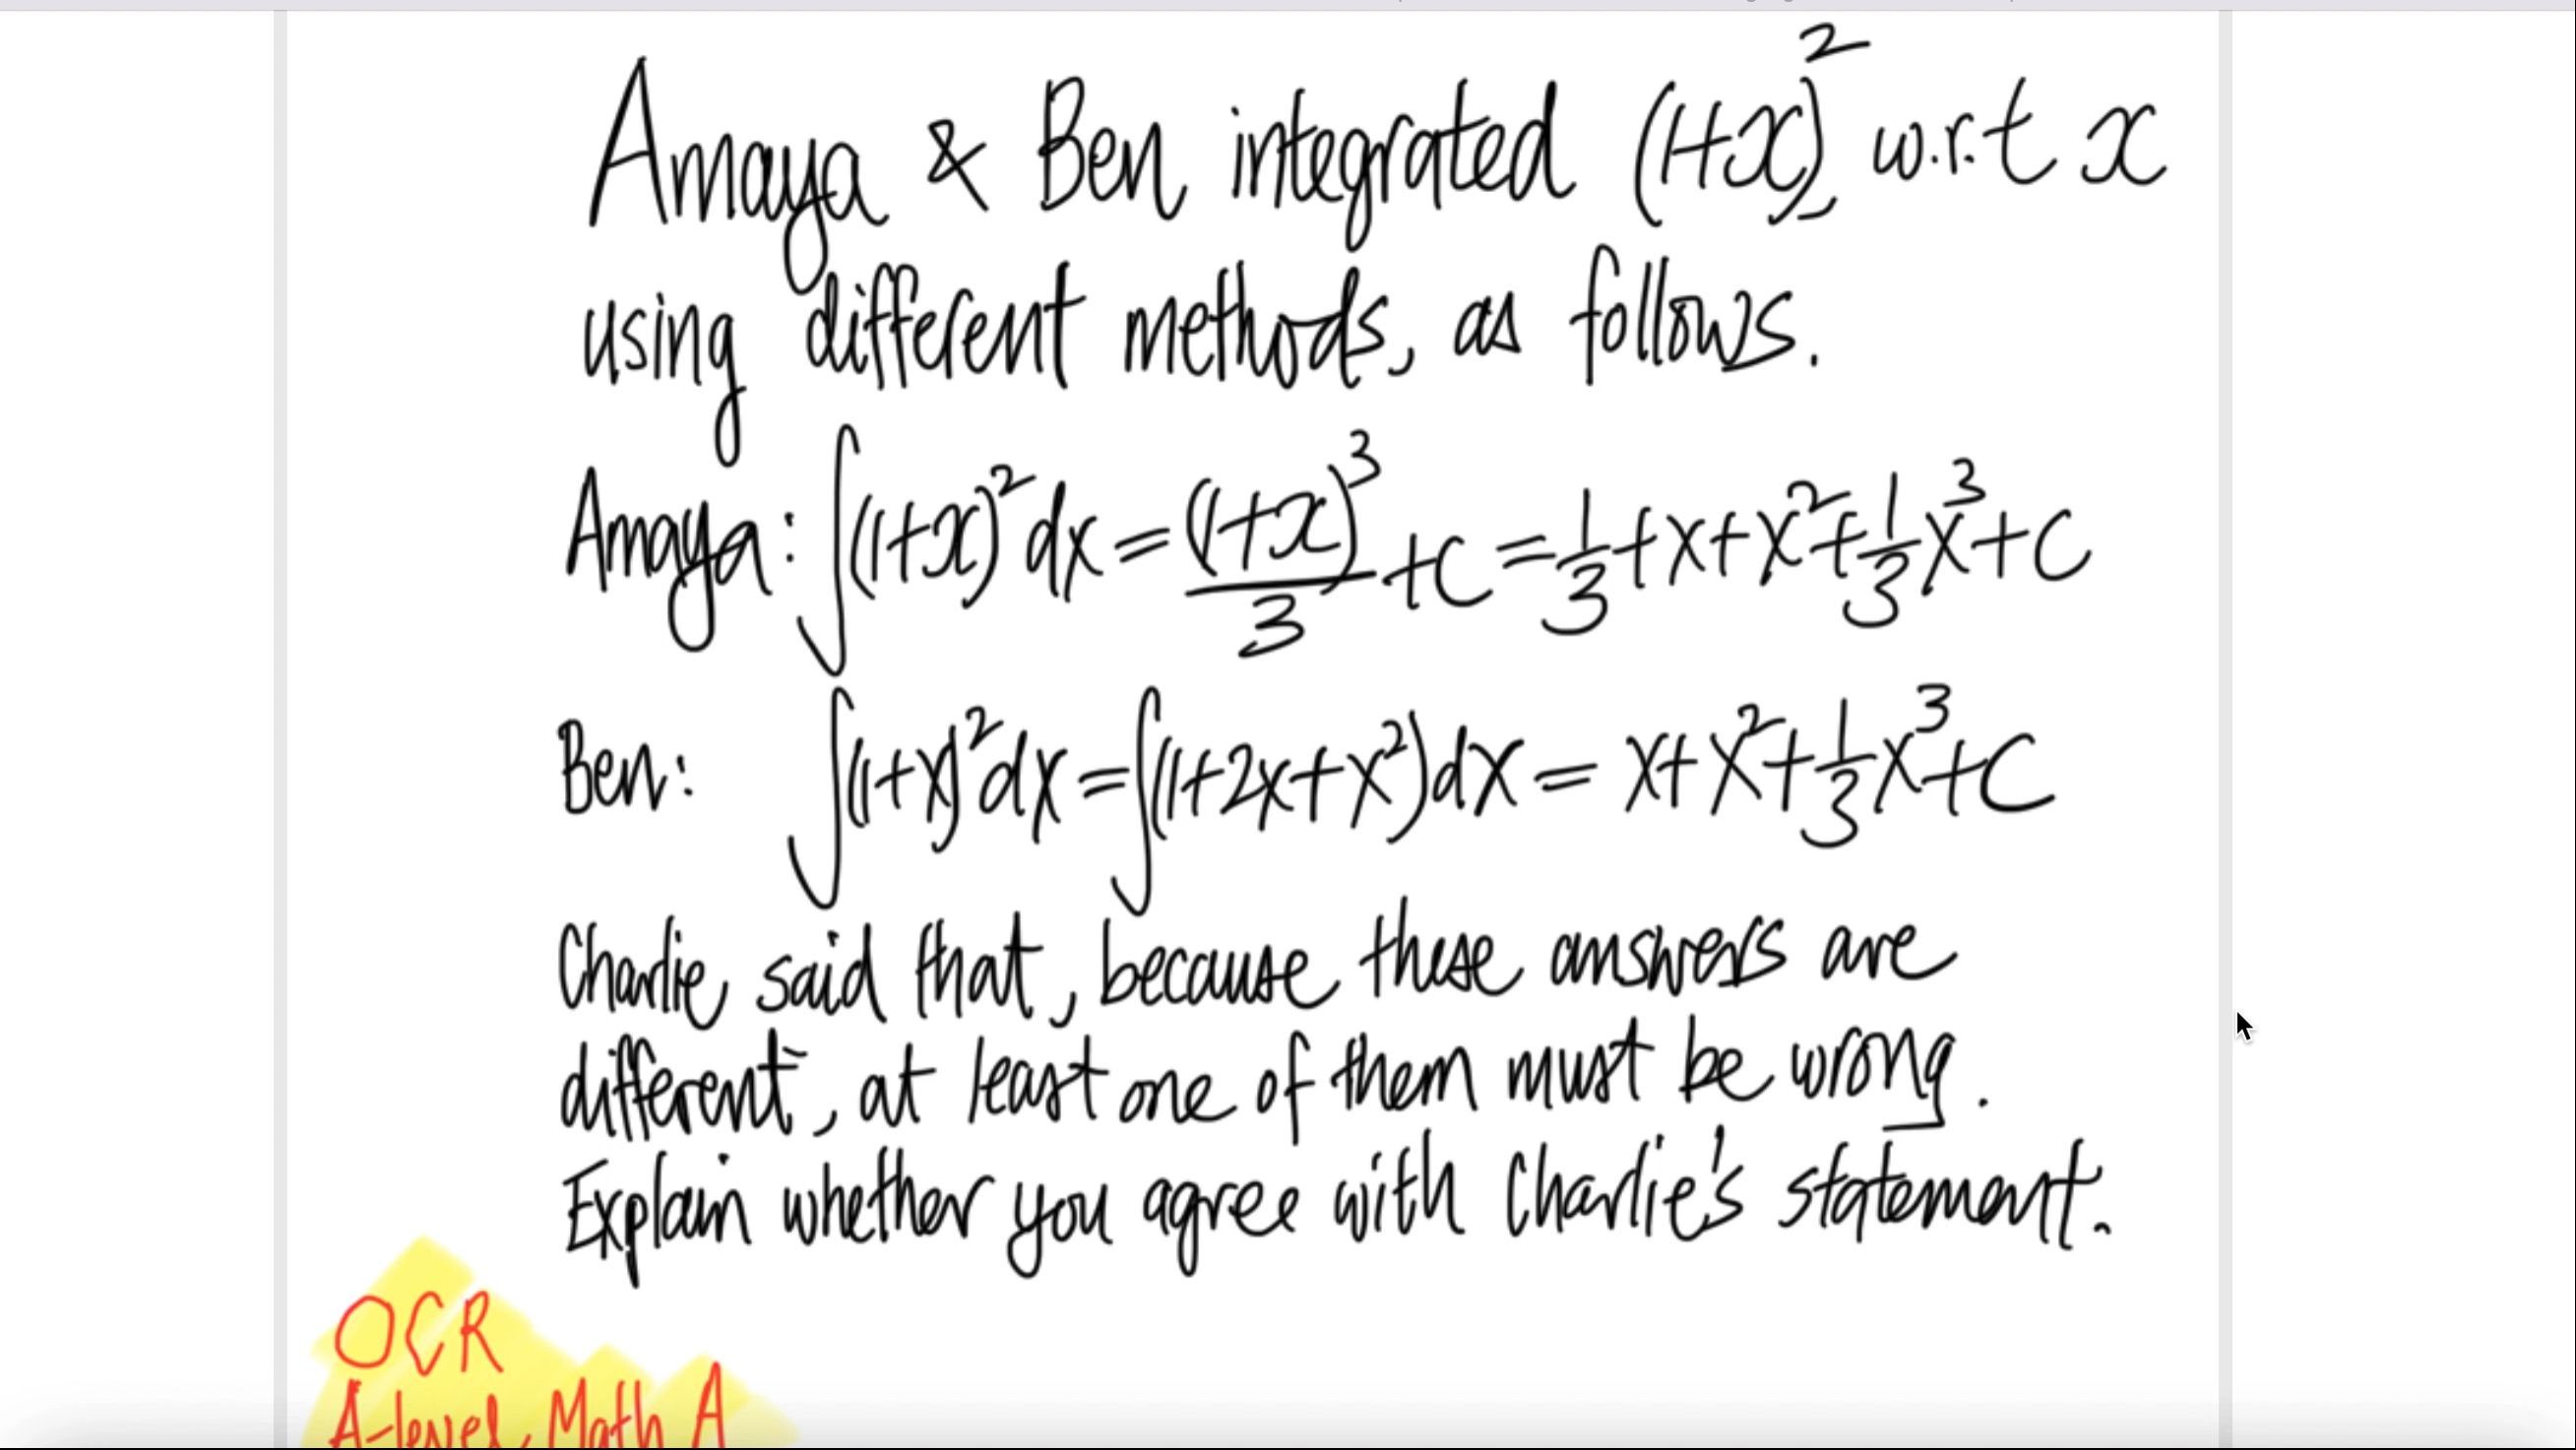 Amaya & Ben integrated (1+x)², w.r.t x
using different methods, as follows.
Amaya: ∫(1+x)²dx = (1+x)³/3 + C = 1/3 + x + x² + 1/3 x³ + C
Ben: ∫(1+x)²dx = ∫(1+2x+x²)dx = x + x² + 1/3 x³ + C
Charlie said that, because these answers are
different, at least one of them must be wrong.
Explain whether you agree with Charlie's statement.
OCR
A-level Math A